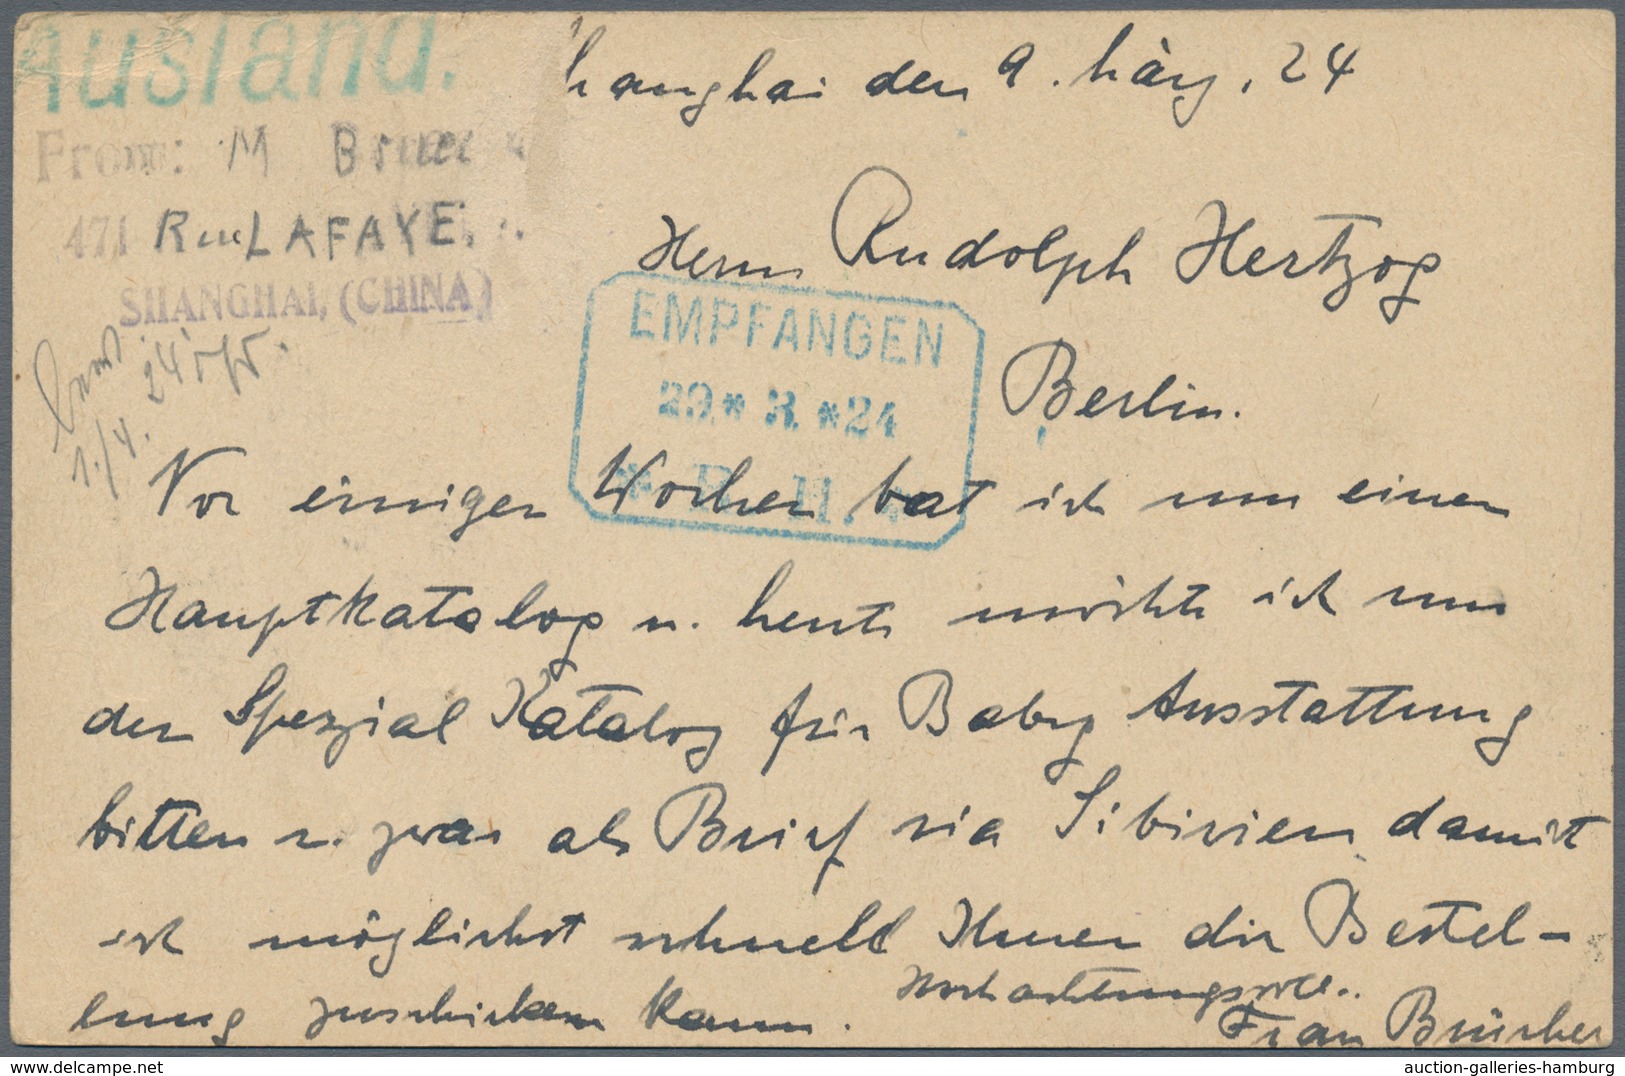 Ausland.
Shanghai den 9. März. 24
From: M
471 Rue LAFAYE.
SHANGHAI, (CHINA)
Herrn Rudolph Hertzog
EMPFANGEN
29 * 3. * 24
* R. H. *
Berlin.
1./4.
Vor einigen Wochen bat ich um einen
Hauptkatalog u. heute möchte ich um
den Spezial Katalog für Baby Ausstattung
bitten u. zwar als Brief via Sibirien damit
ich möglichst schnell Ihnen die Bestel-
lung zuschicken kann.
Hochachtungsvoll.
Frau Brücher
auction-galleries-hamburg